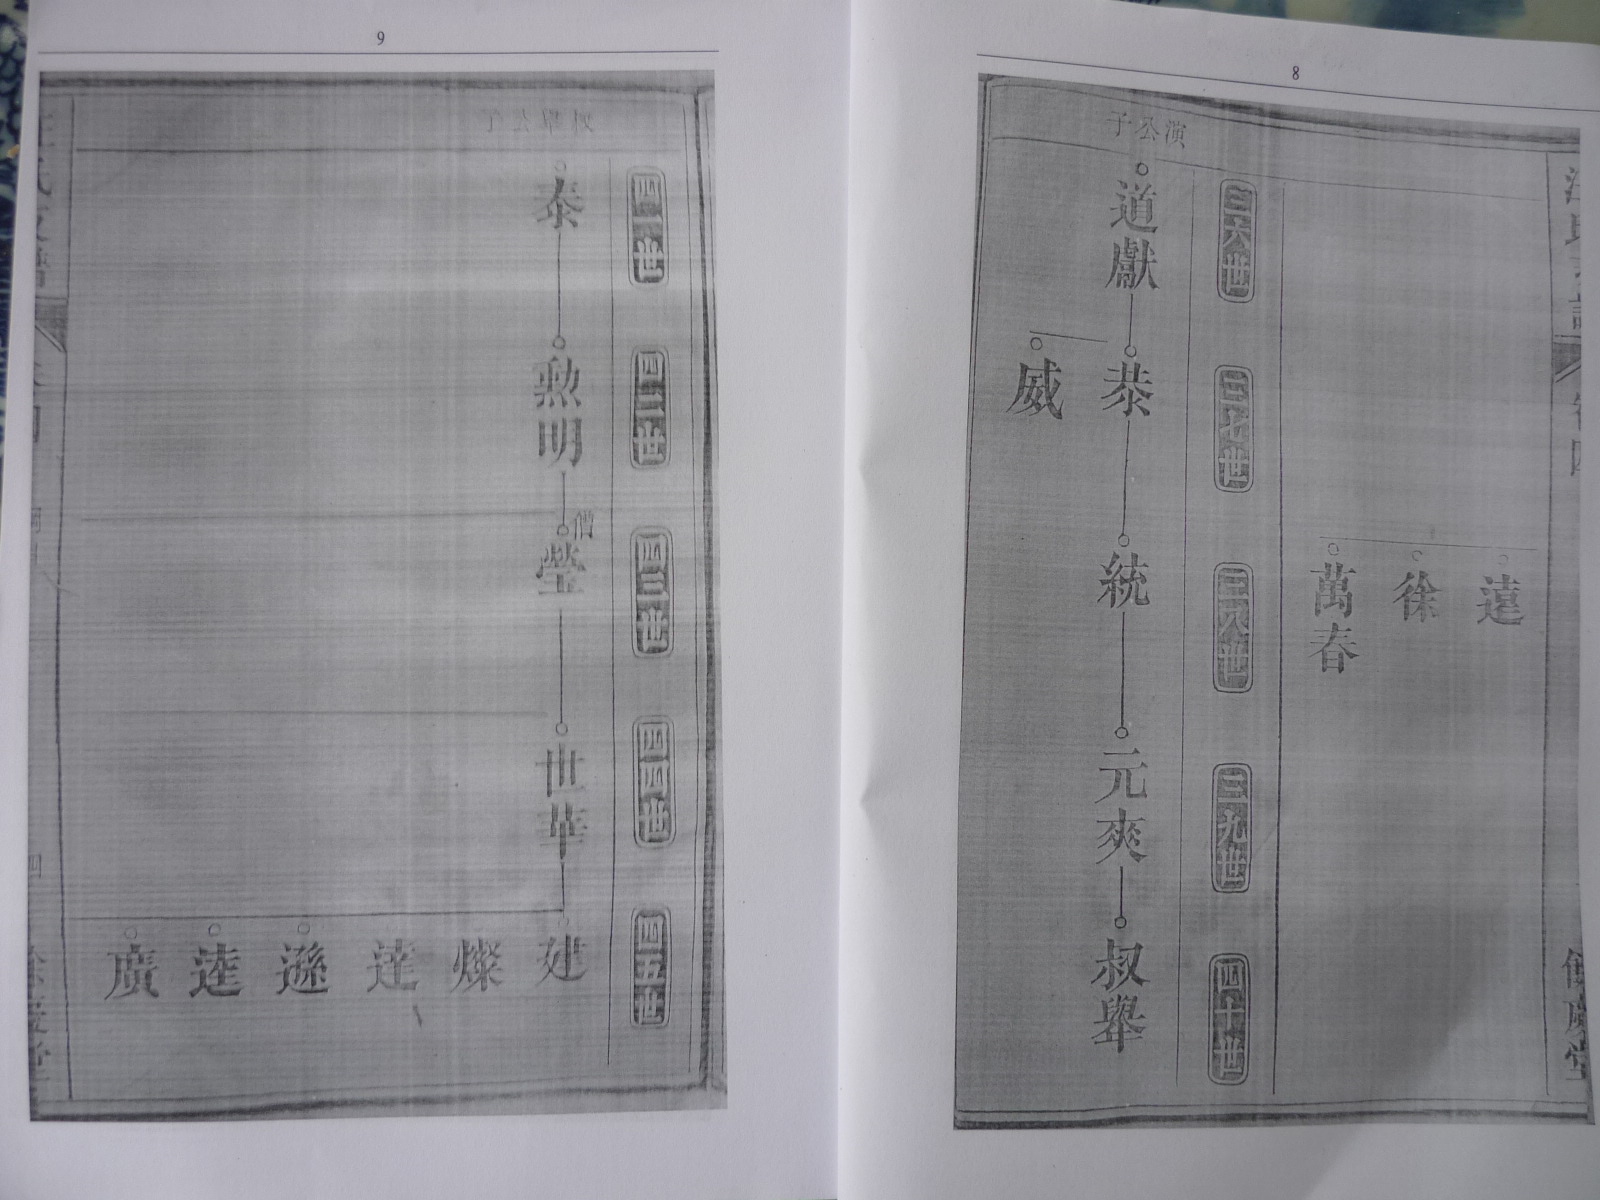 8
遠
徐
萬春
三六世
三七世
三八世
三九世
四十世
演公子
道獻
恭
統
元爽
叔舉
威
9
四一世
四二世
四三世
四四世
四五世
叔舉公子
泰
勲明
僧
瑩
世華
建
燦
達
遜
逵
廣